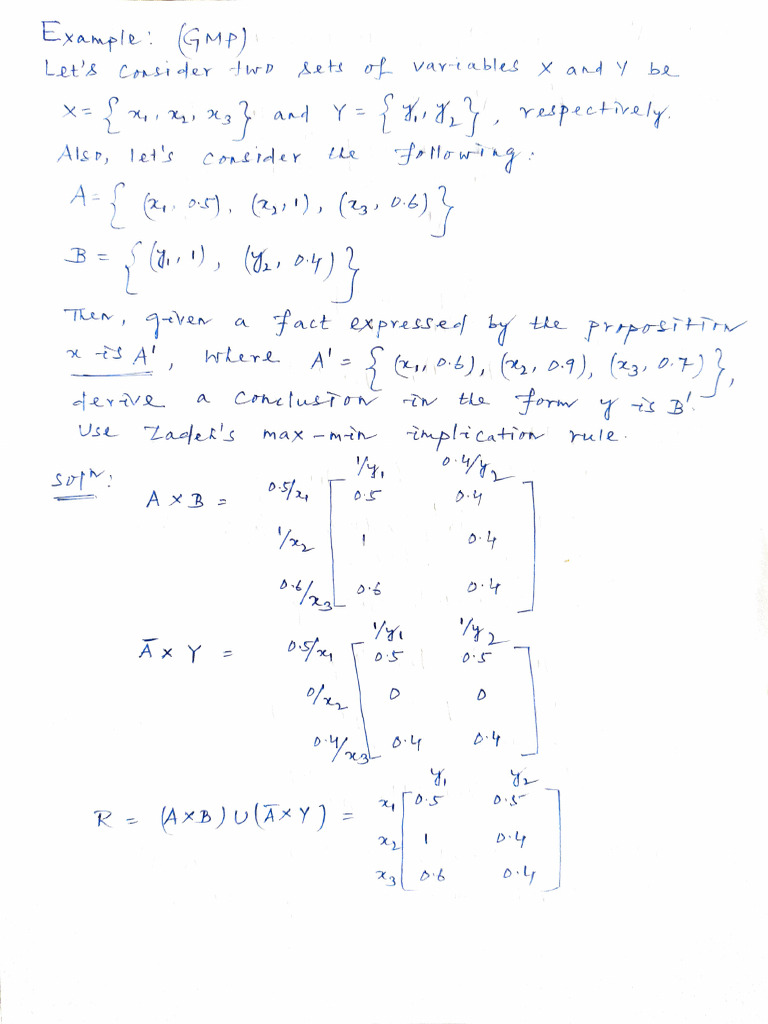 Example: (GMP)
Let's consider two sets of variables X and Y be
X = { x₁, x₂, x₃ } and Y = { y₁, y₂ }, respectively.
Also, let's consider the following:
A = { (x₁, 0.5), (x₂, 1), (x₃, 0.6) }
B = { (y₁, 1), (y₂, 0.4) }
Then, given a fact expressed by the proposition
x is A', where A' = { (x₁, 0.6), (x₂, 0.9), (x₃, 0.7) },
derive a conclusion in the form y is B'.
Use Zadeh's max-min implication rule.
1/y₁ 0.4/y₂
solⁿ: A × B = 0.5/x₁ [ 0.5 0.4
1/x₂ 1 0.4
0.6/x₃ 0.6 0.4 ]
1/y₁ 1/y₂
Ā × Y = 0.5/x₁ [ 0.5 0.5
0/x₂ 0 0
0.4/x₃ 0.4 0.4 ]
y₁ y₂
R = (A×B) ∪ (Ā×Y) = x₁ [ 0.5 0.5
x₂ 1 0.4
x₃ 0.6 0.4 ]